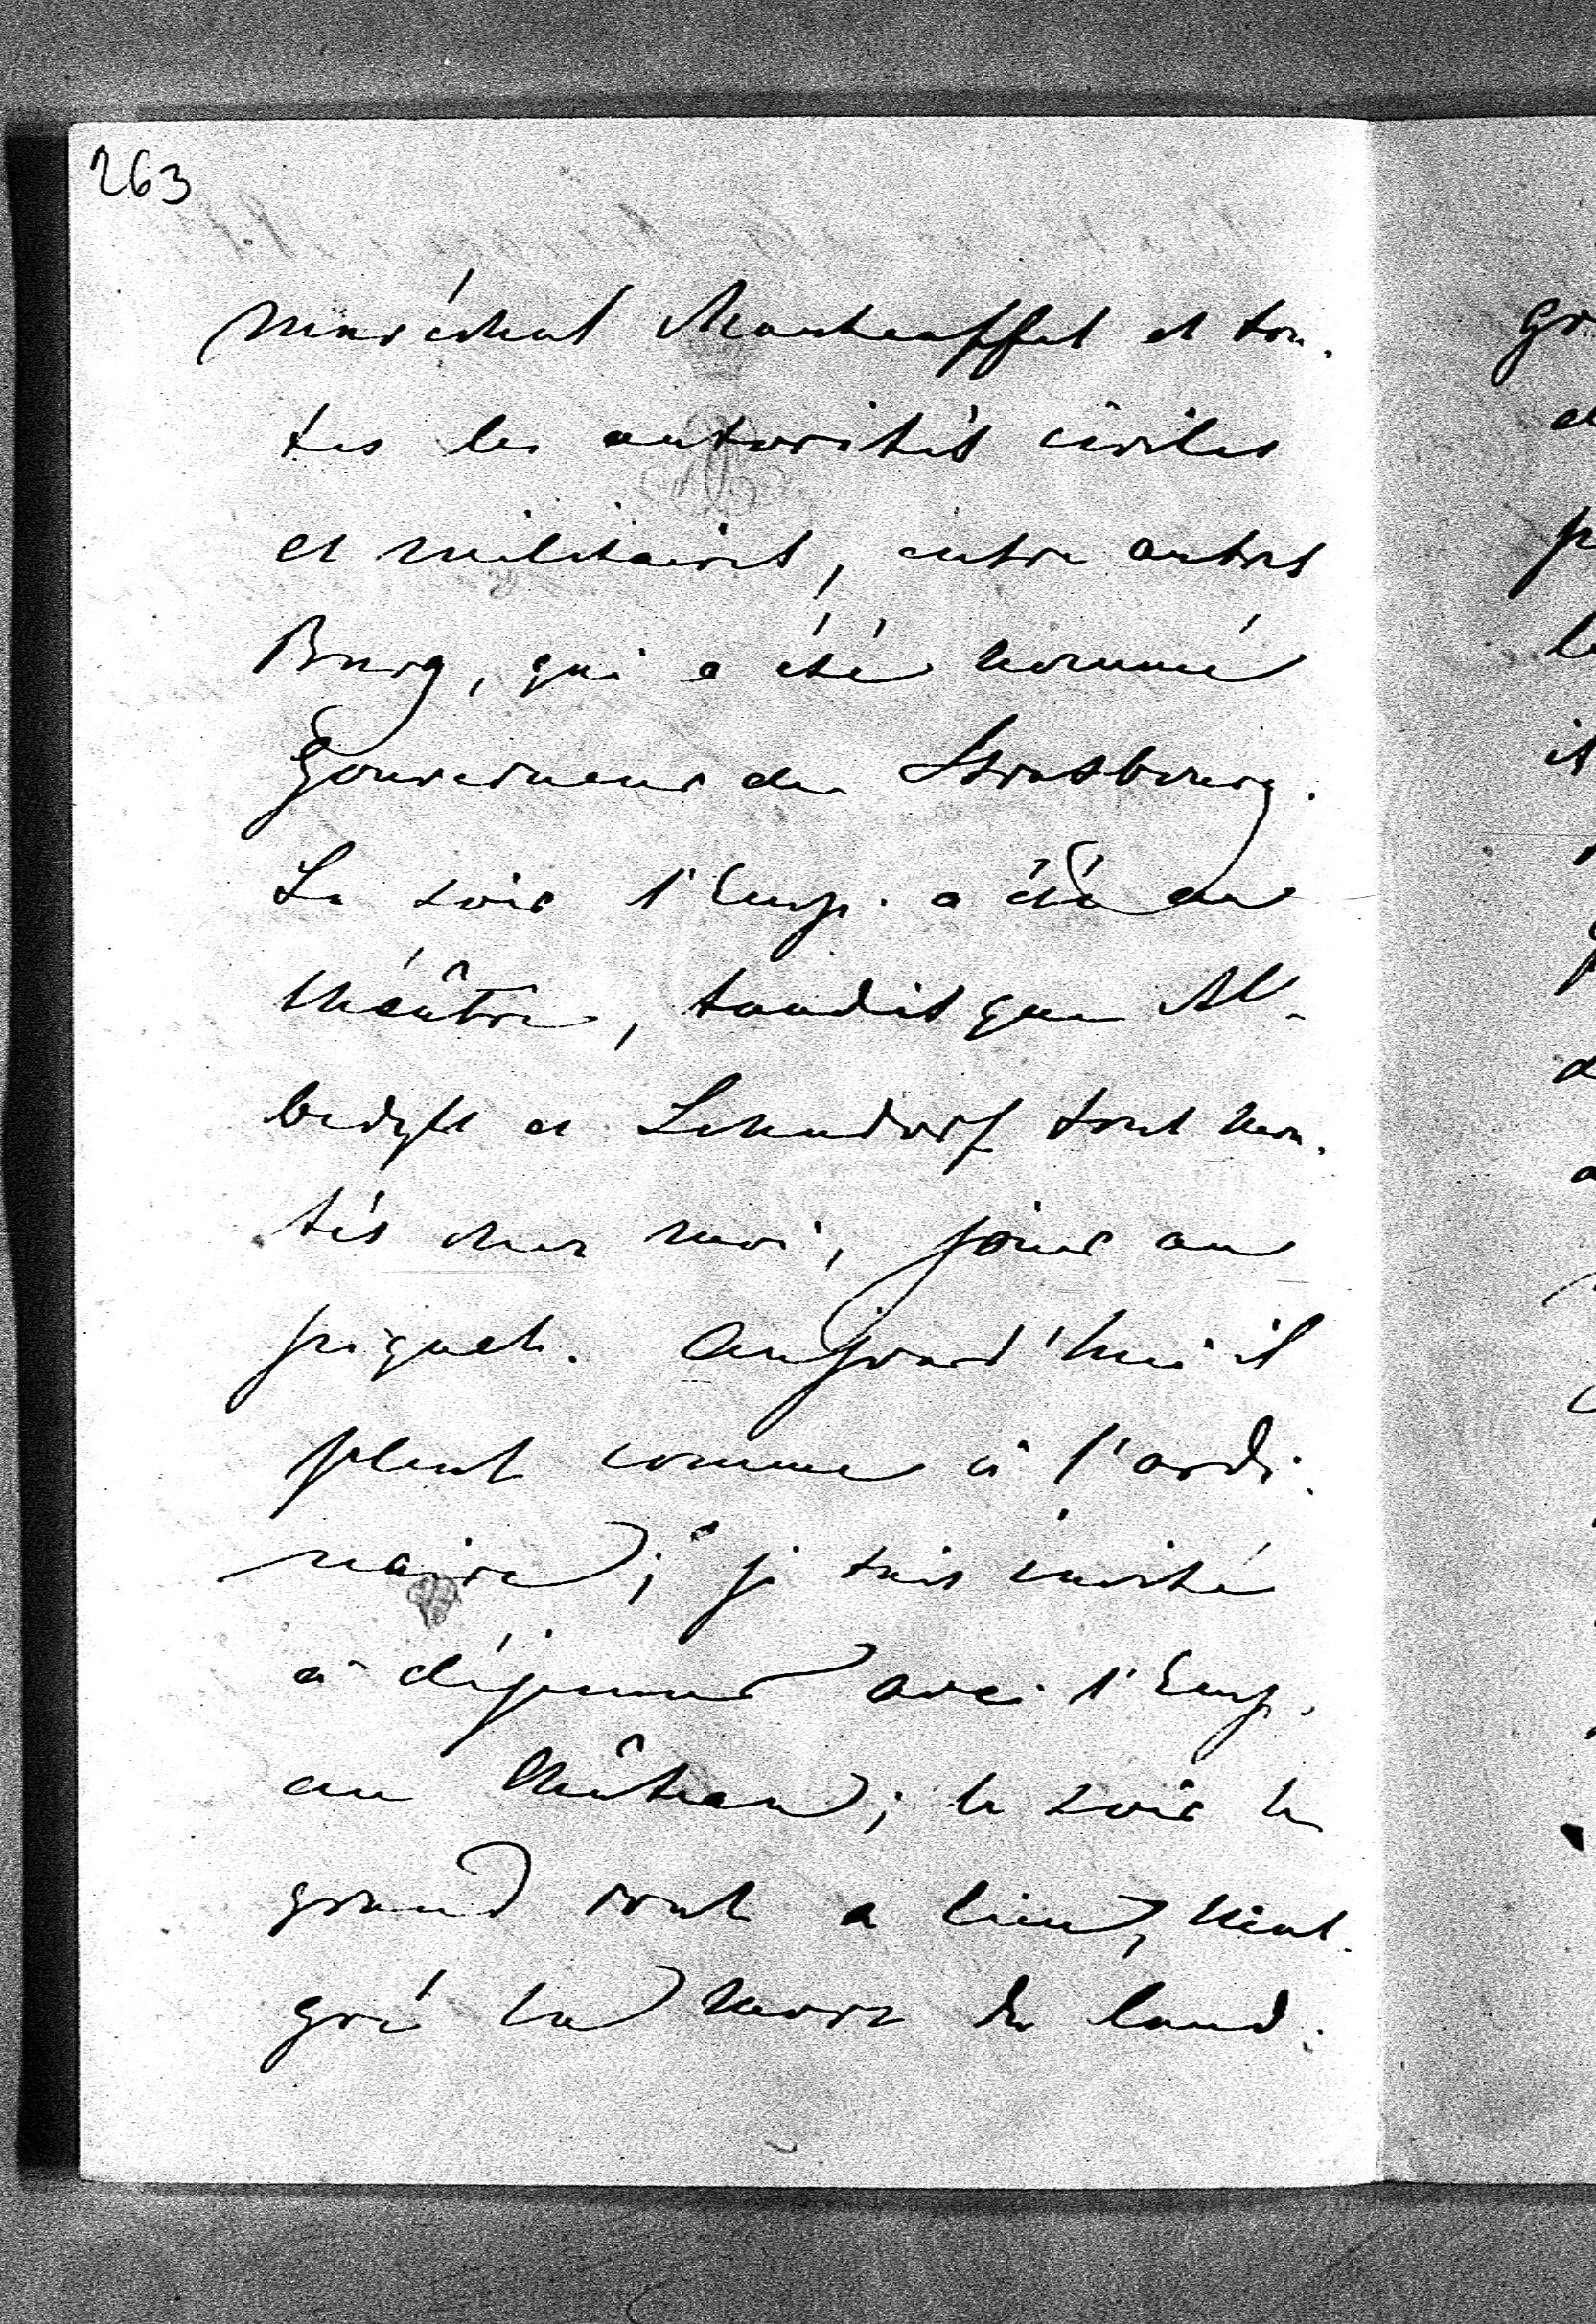 263
maréchal Manteuffel et tou-
tes les autorités civiles
et militaires, entre autres
Burg, qui a été nommé
Gouverneur de Strasbourg.
Le soir l'Emp. a été au
théâtre, tandis que Al-
bedyll et Lehndorf sont mon-
tés chez moi, jouer au
piquet. Aujourd'hui il
pleut comme à l'ordi-
naire; je suis invité
à déjeuner avec l'Emp.
au Château; le soir le
grand rout a lieu, mal-
gré la mort du land-